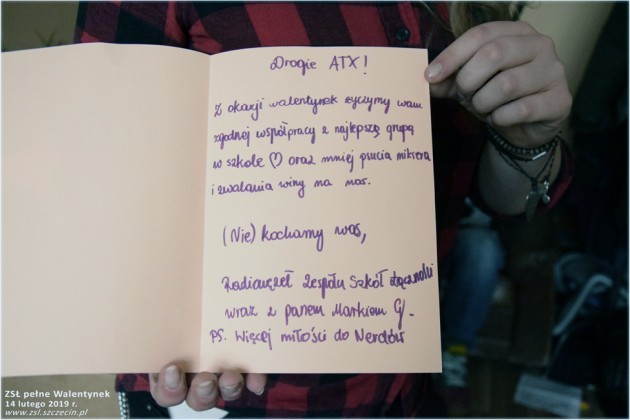 Drogie ATX!
Z okazji walentynek życzymy wam
zgodnej współpracy z najlepszę grupą
w szkole ♡ oraz mniej psucia miksera
i zwalania winy na nas.
(Nie) kochamy was,
Radiowęzeł Zespołu Szkół Łączności
wraz z panem Markiem G/.
PS. Więcej miłości do Nerdów
ZSŁ pełne Walentynek
14 lutego 2019 r.
www.zsl.szczecin.pl